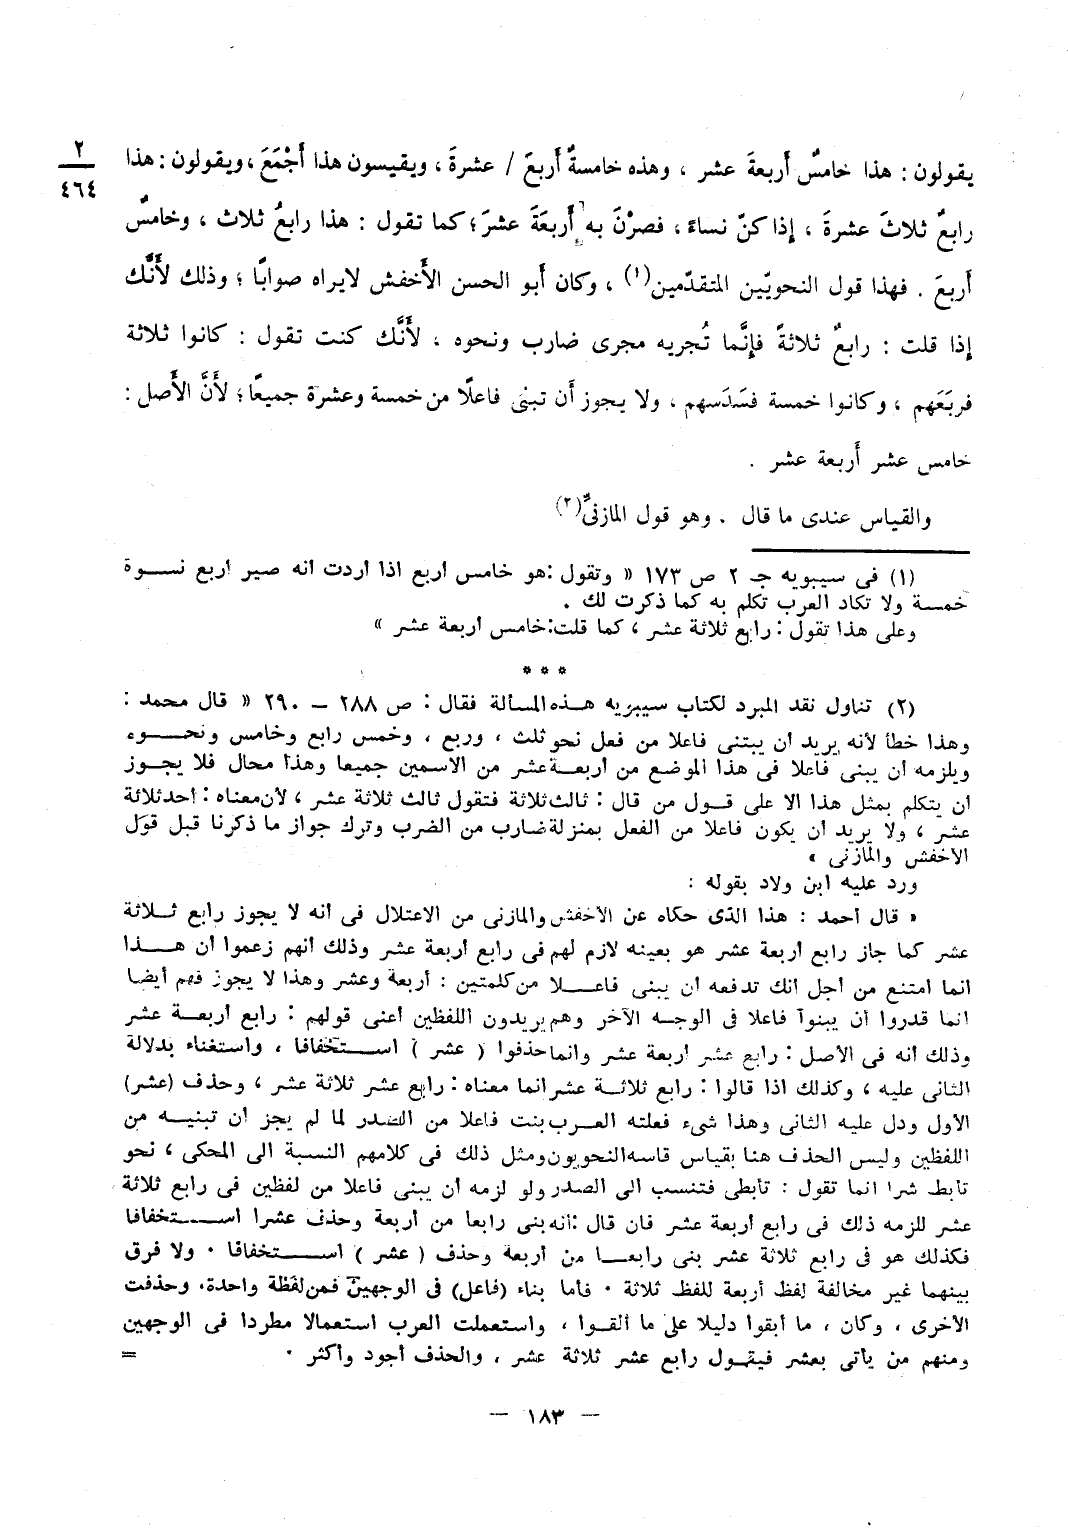 ٢
٤٦٤
يقولون : هذا خامسُ أربعةَ عشر ، وهذه خامسةُ أربعَ / عشرةَ ، ويقيسون هذا أَجْمَعَ ، ويقولون : هذا
رابعُ ثلاثَ عشرةَ ، إذا كنّ نساءً ، فصِرْنَ به أَربعَةَ عشرَ ؛ كما تقول : هذا رابعُ ثلاث ، وخامسُ
أربعَ . فهذا قول النحويّين المتقدّمين(١) ، وكان أبو الحسن الأَخفش لايراه صوابًا ؛ وذلك لأَنَّك
إذا قلت : رابعُ ثلاثةً فإنَّما تُجريه مجرى ضارب ونحوه ، لأَنَّك كنت تقول : كانوا ثلاثة
فربَعَهم ، وكانوا خمسة فسَدَسهم ، ولا يجوز أَن تبنى فاعلًا من خمسة وعشرة جميعًا ؛ لأَنَّ الأَصل :
خامس عشر أَربعة عشر .
والقياس عندى ما قال . وهو قول المازنىِّ(٢)
(١) فى سيبويه جـ ٢ ص ١٧٣ « وتقول : هو خامس أربع اذا اردت انه صير اربع نسـوة
خمسة ولا تكاد العرب تكلم به كما ذكرت لك .
وعلى هذا تقول : رابع ثلاثة عشر ، كما قلت : خامس اربعة عشر »
* * *
(٢) تناول نقد المبرد لكتاب سيبويه هذه المسألة فقال : ص ٢٨٨ – ٢٩٠ « قال محمد :
وهذا خطأ لأنه يريد ان يبتنى فاعلا من فعل نحو ثلث ، وربع ، وخمس رابع وخامس ونحوه
ويلزمه أن يبنى فاعلا فى هذا الموضع من أربعة عشر من الاسمين جميعا وهذا محال فلا يجوز
ان يتكلم بمثل هذا الا على قول من قال : ثالث ثلاثة فتقول ثالث ثلاثة عشر ، لأن معناه : أحد ثلاثة
عشر ، ولا يريد ان يكون فاعلا من الفعل بمنزلة ضارب من الضرب وترك جواز ما ذكرنا قبل قول
الاخفش والمازنى »
ورد عليه ابن ولاد بقوله :
« قال أحمد : هذا الذى حكاه عن الأخفش والمازنى من الاعتلال فى انه لا يجوز رابع ثلاثة
عشر كما جاز رابع أربعة عشر هو بعينه لازم لهم فى رابع أربعة عشر وذلك أنهم زعموا أن هذا
انما امتنع من أجل انك تدفعه أن يبنى فاعلا من كلمتين : أربعة وعشر وهذا لا يجوز فهم أيضا
انما قدروا أن يبنوا فاعلا فى الوجه الآخر وهم يريدون اللفظين أعنى قولهم : رابع أربعة عشر
وذلك أنه فى الأصل : رابع عشر اربعة عشر وانما حذفوا ( عشر ) استخفافا ، واستغناء بدلالة
الثانى عليه ، وكذلك اذا قالوا : رابع ثلاثة عشر انما معناه : رابع عشر ثلاثة عشر ، وحذف (عشر)
الأول ودل عليه الثانى وهذا شىء فعلته العرب بنت فاعلا من الصدر لما لم يجز ان تبنيه من
اللفظين وليس الحذف هنا بقياس قاسه النحويون ومثل ذلك فى كلامهم النسبة الى المحكى ، نحو
تأبط شرا انما تقول : تأبطى فتنسب الى الصدر ولو لزمه أن يبنى فاعلا من لفظين فى رابع ثلاثة
عشر للزمه ذلك فى رابع أربعة عشر فان قال : انه بنى رابعا من أربعة وحذف عشرا استخفافا
فكذلك هو فى رابع ثلاثة عشر بنى رابعا من أربعة وحذف ( عشر ) استخفافا . ولا فرق
بينهما غير مخالفة لفظ أربعة للفظ ثلاثة . فأما بناء (فاعل) فى الوجهين فمن لفظة واحدة، وحذفت
الأخرى ، وكان ، ما أبقوا دليلا على ما القوا ، واستعملت العرب استعمالا مطردا فى الوجهين
ومنهم من يأتى بعشر فيقول رابع عشر ثلاثة عشر ، والحذف أجود وأكثر . =
— ١٨٣ —